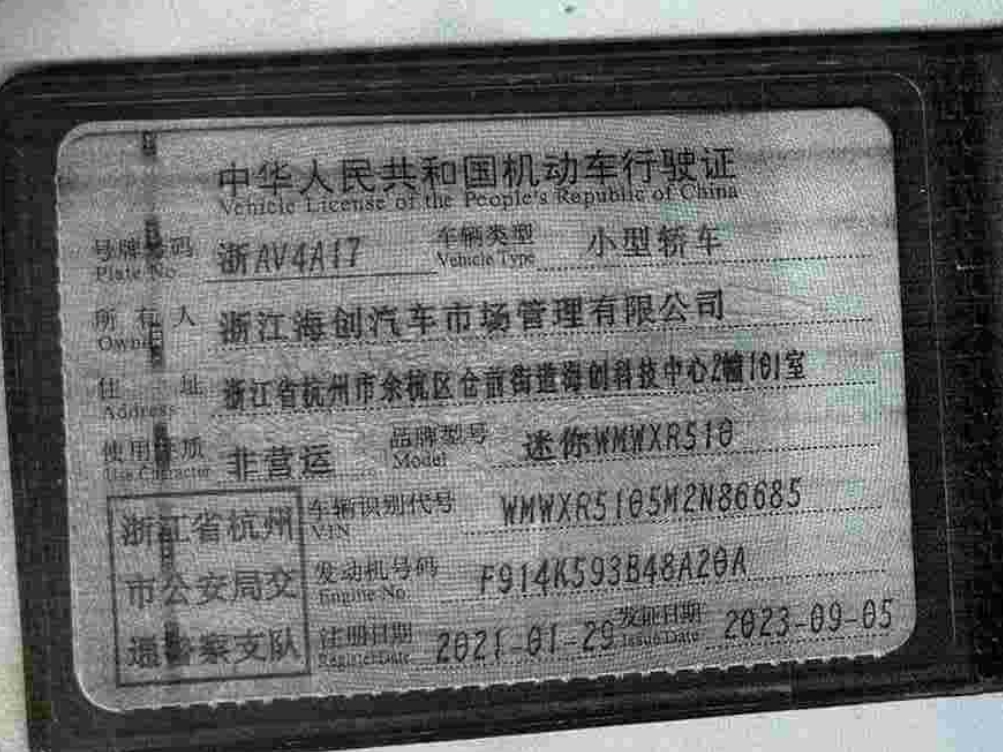 中华人民共和国机动车行驶证
Vehicle License of the People's Republic of China
号牌号码 浙AV4A17 车辆类型 小型轿车
Plate No. Vehicle Type
所有人 浙江海创汽车市场管理有限公司
Owner
住址 浙江省杭州市余杭区仓前街道海创科技中心2幢101室
Address
使用性质 非营运 品牌型号 迷你WMWXR510
Use Character Model
浙江省杭州 车辆识别代号 WMWXR5105M2N86685
VIN
市公安局交 发动机号码 F914K593B48A20A
Engine No.
通警察支队 注册日期 2021-01-29 发证日期 2023-09-05
Register Date Issue Date